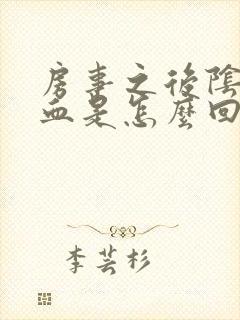 房事之後陰
血是怎麼回
李芸杉